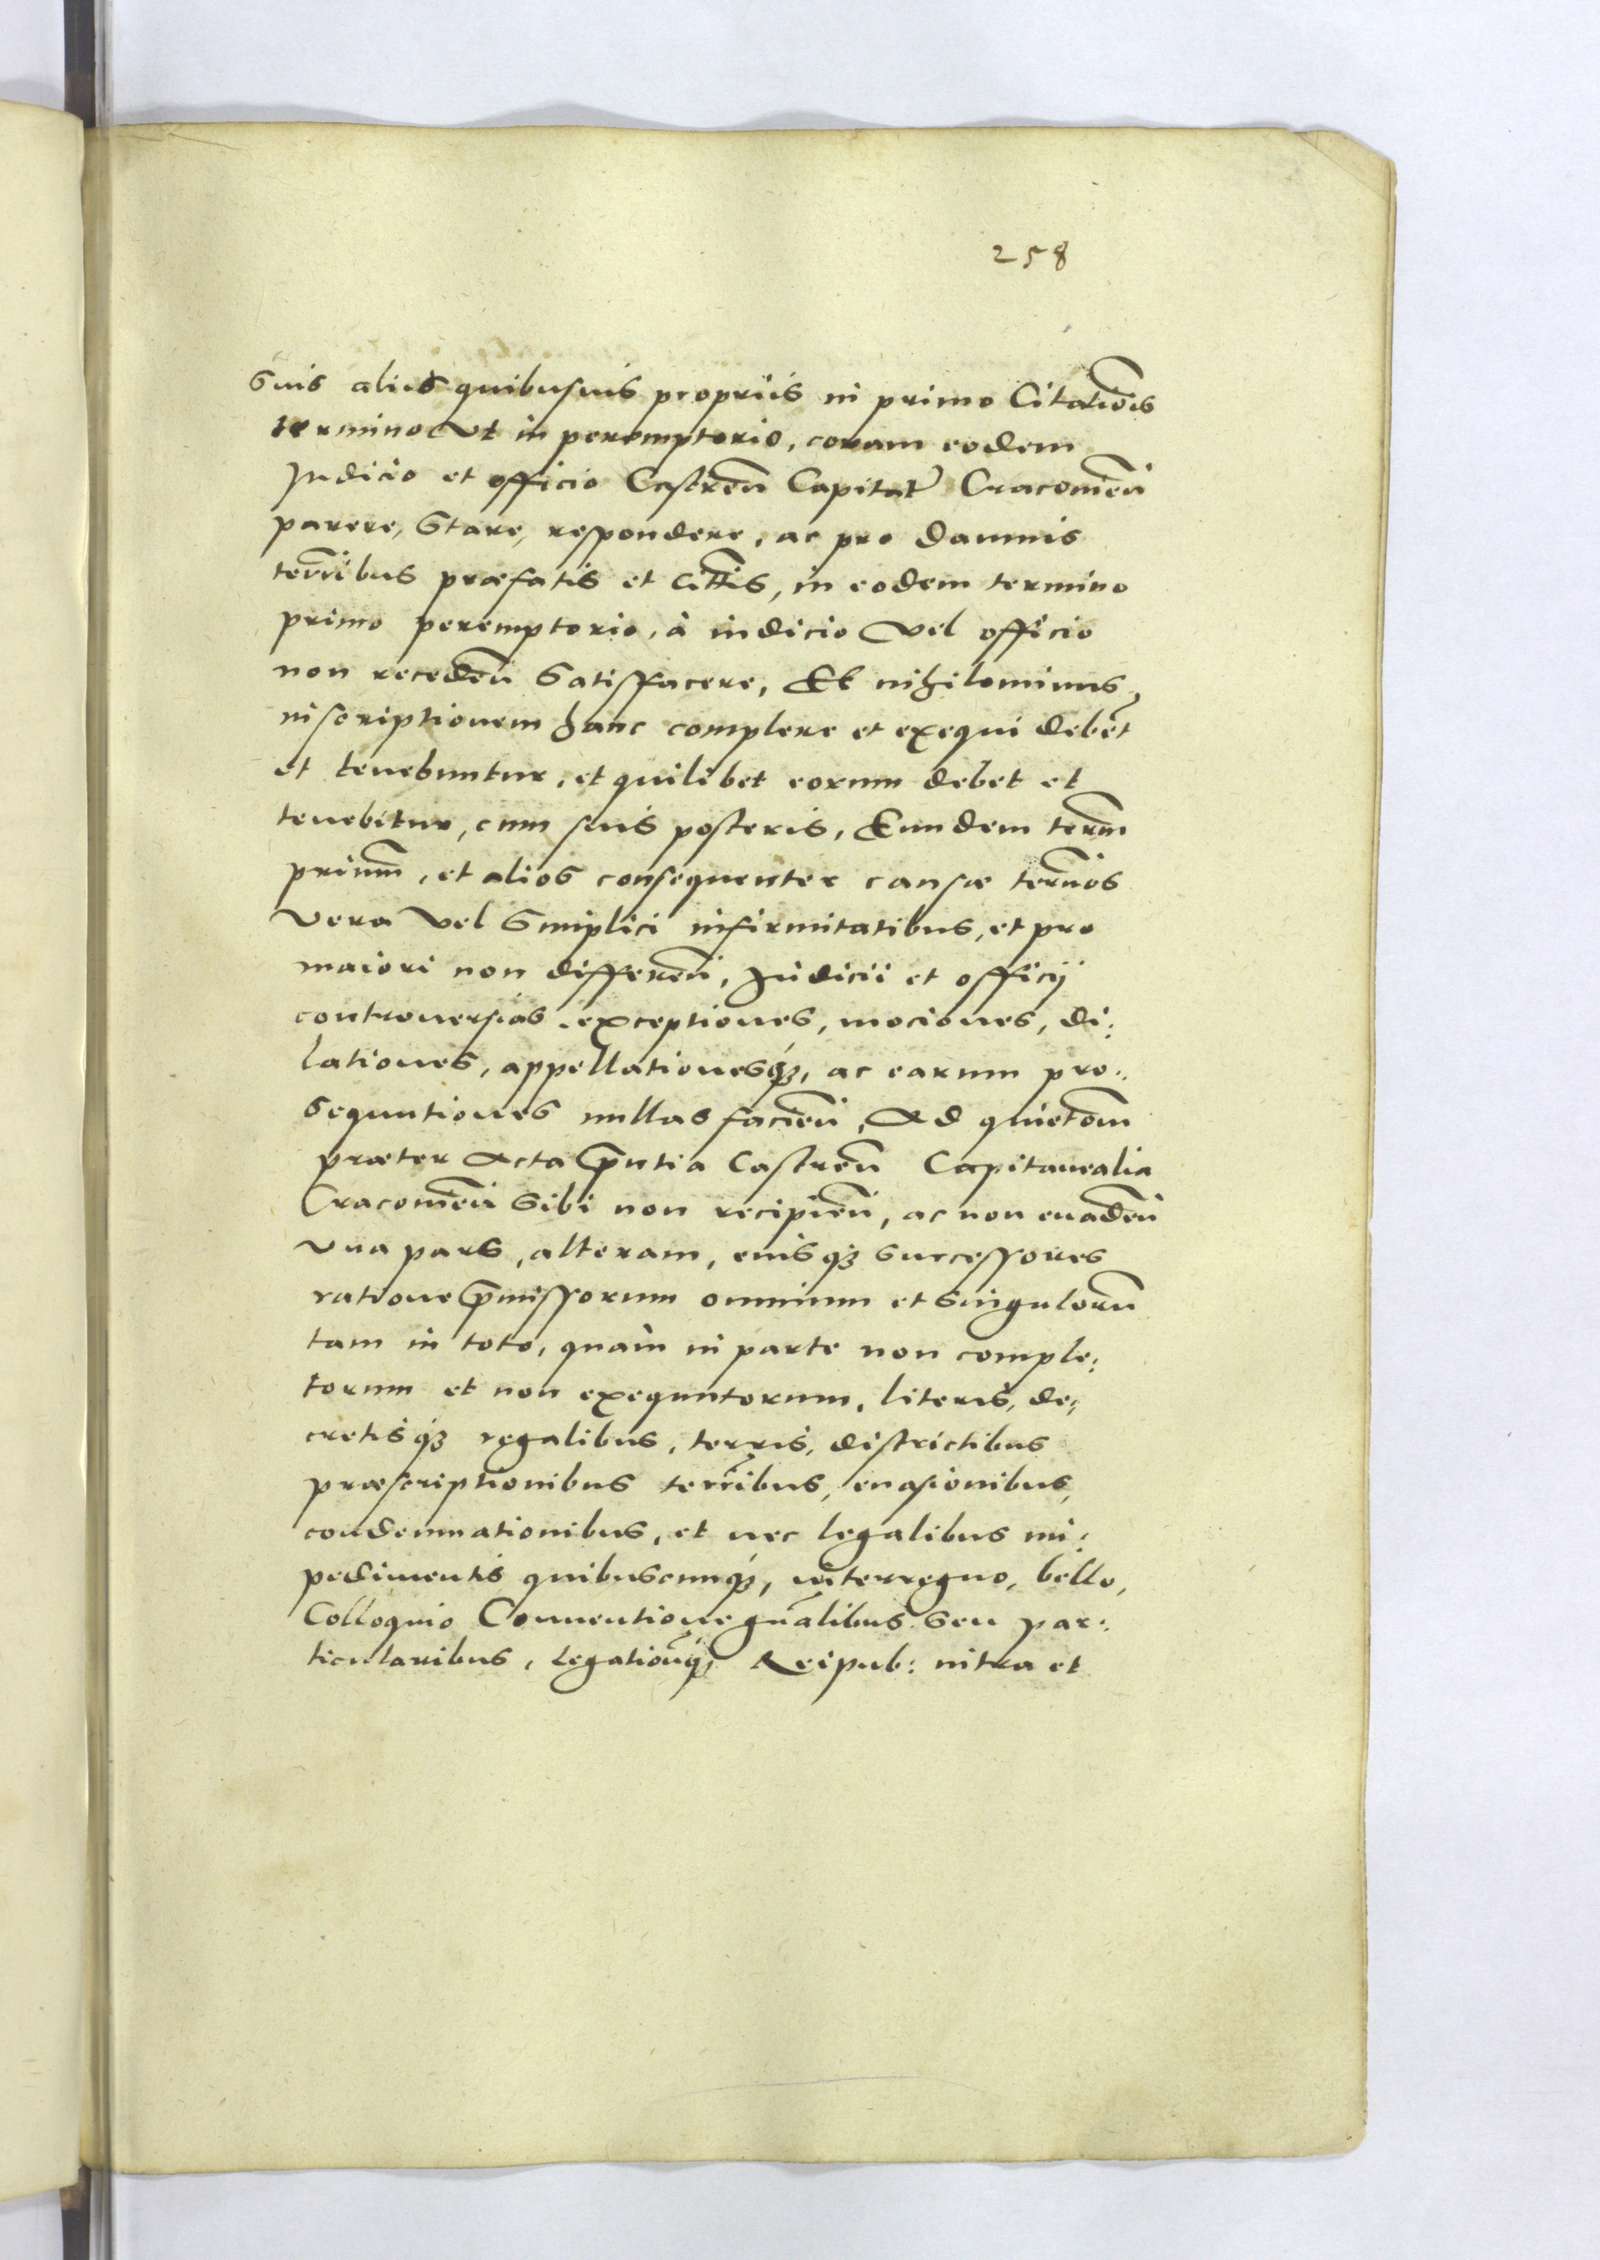 258
suis aliis quibusuis propriis in primo Citatiōis
termino Vt in peremptorio, coram eodem
Judicio et officio Castreñ Capitat Cracovieñ
parere, stare, respondere, ac pro damnis
terribus præfatis et Cittis, in eodem termino
primo peremptorio, à iudicio Vel officio
non recedeñ satisfacere, Et nihilominus,
inscriptionem hanc complere et exequi debet
et tenebuntur, et quilibet eorum debet et
tenebitur, cum suis posteris, Eundem term̃
primm̃, et alios consequenter causæ ter̃nos
Vera Vel simplici infirmitatibus, et pro
maiori non differeñ, Judicii et officij
controuersias exceptiones, mociones, di:
lationes, appellationesq3, ac earum pro:
sequutiones nullas facieñ, Ad quietõm
præter Acta p̃ntia Castreñ Capitanealia
Cracovieñ sibi non recipieñ, ac non euadeñ
Vna pars, alteram, eiusq3 successores
ratione p̃missorum omnium et singulorũ
tam in toto, quàm in parte non comple:
torum et non exequutorum, literis, de:
cretisq3 regalibus, terris, districtibus
præscriptionibus terr̃ibus, euasionibus,
condemnationibus, et nec legalibus im:
pedimentis quibuscumq3, interregno, bello,
Colloquio Conuentione gñalibus seu par:
ticularibus, Legationũq3 Reipub: intra et